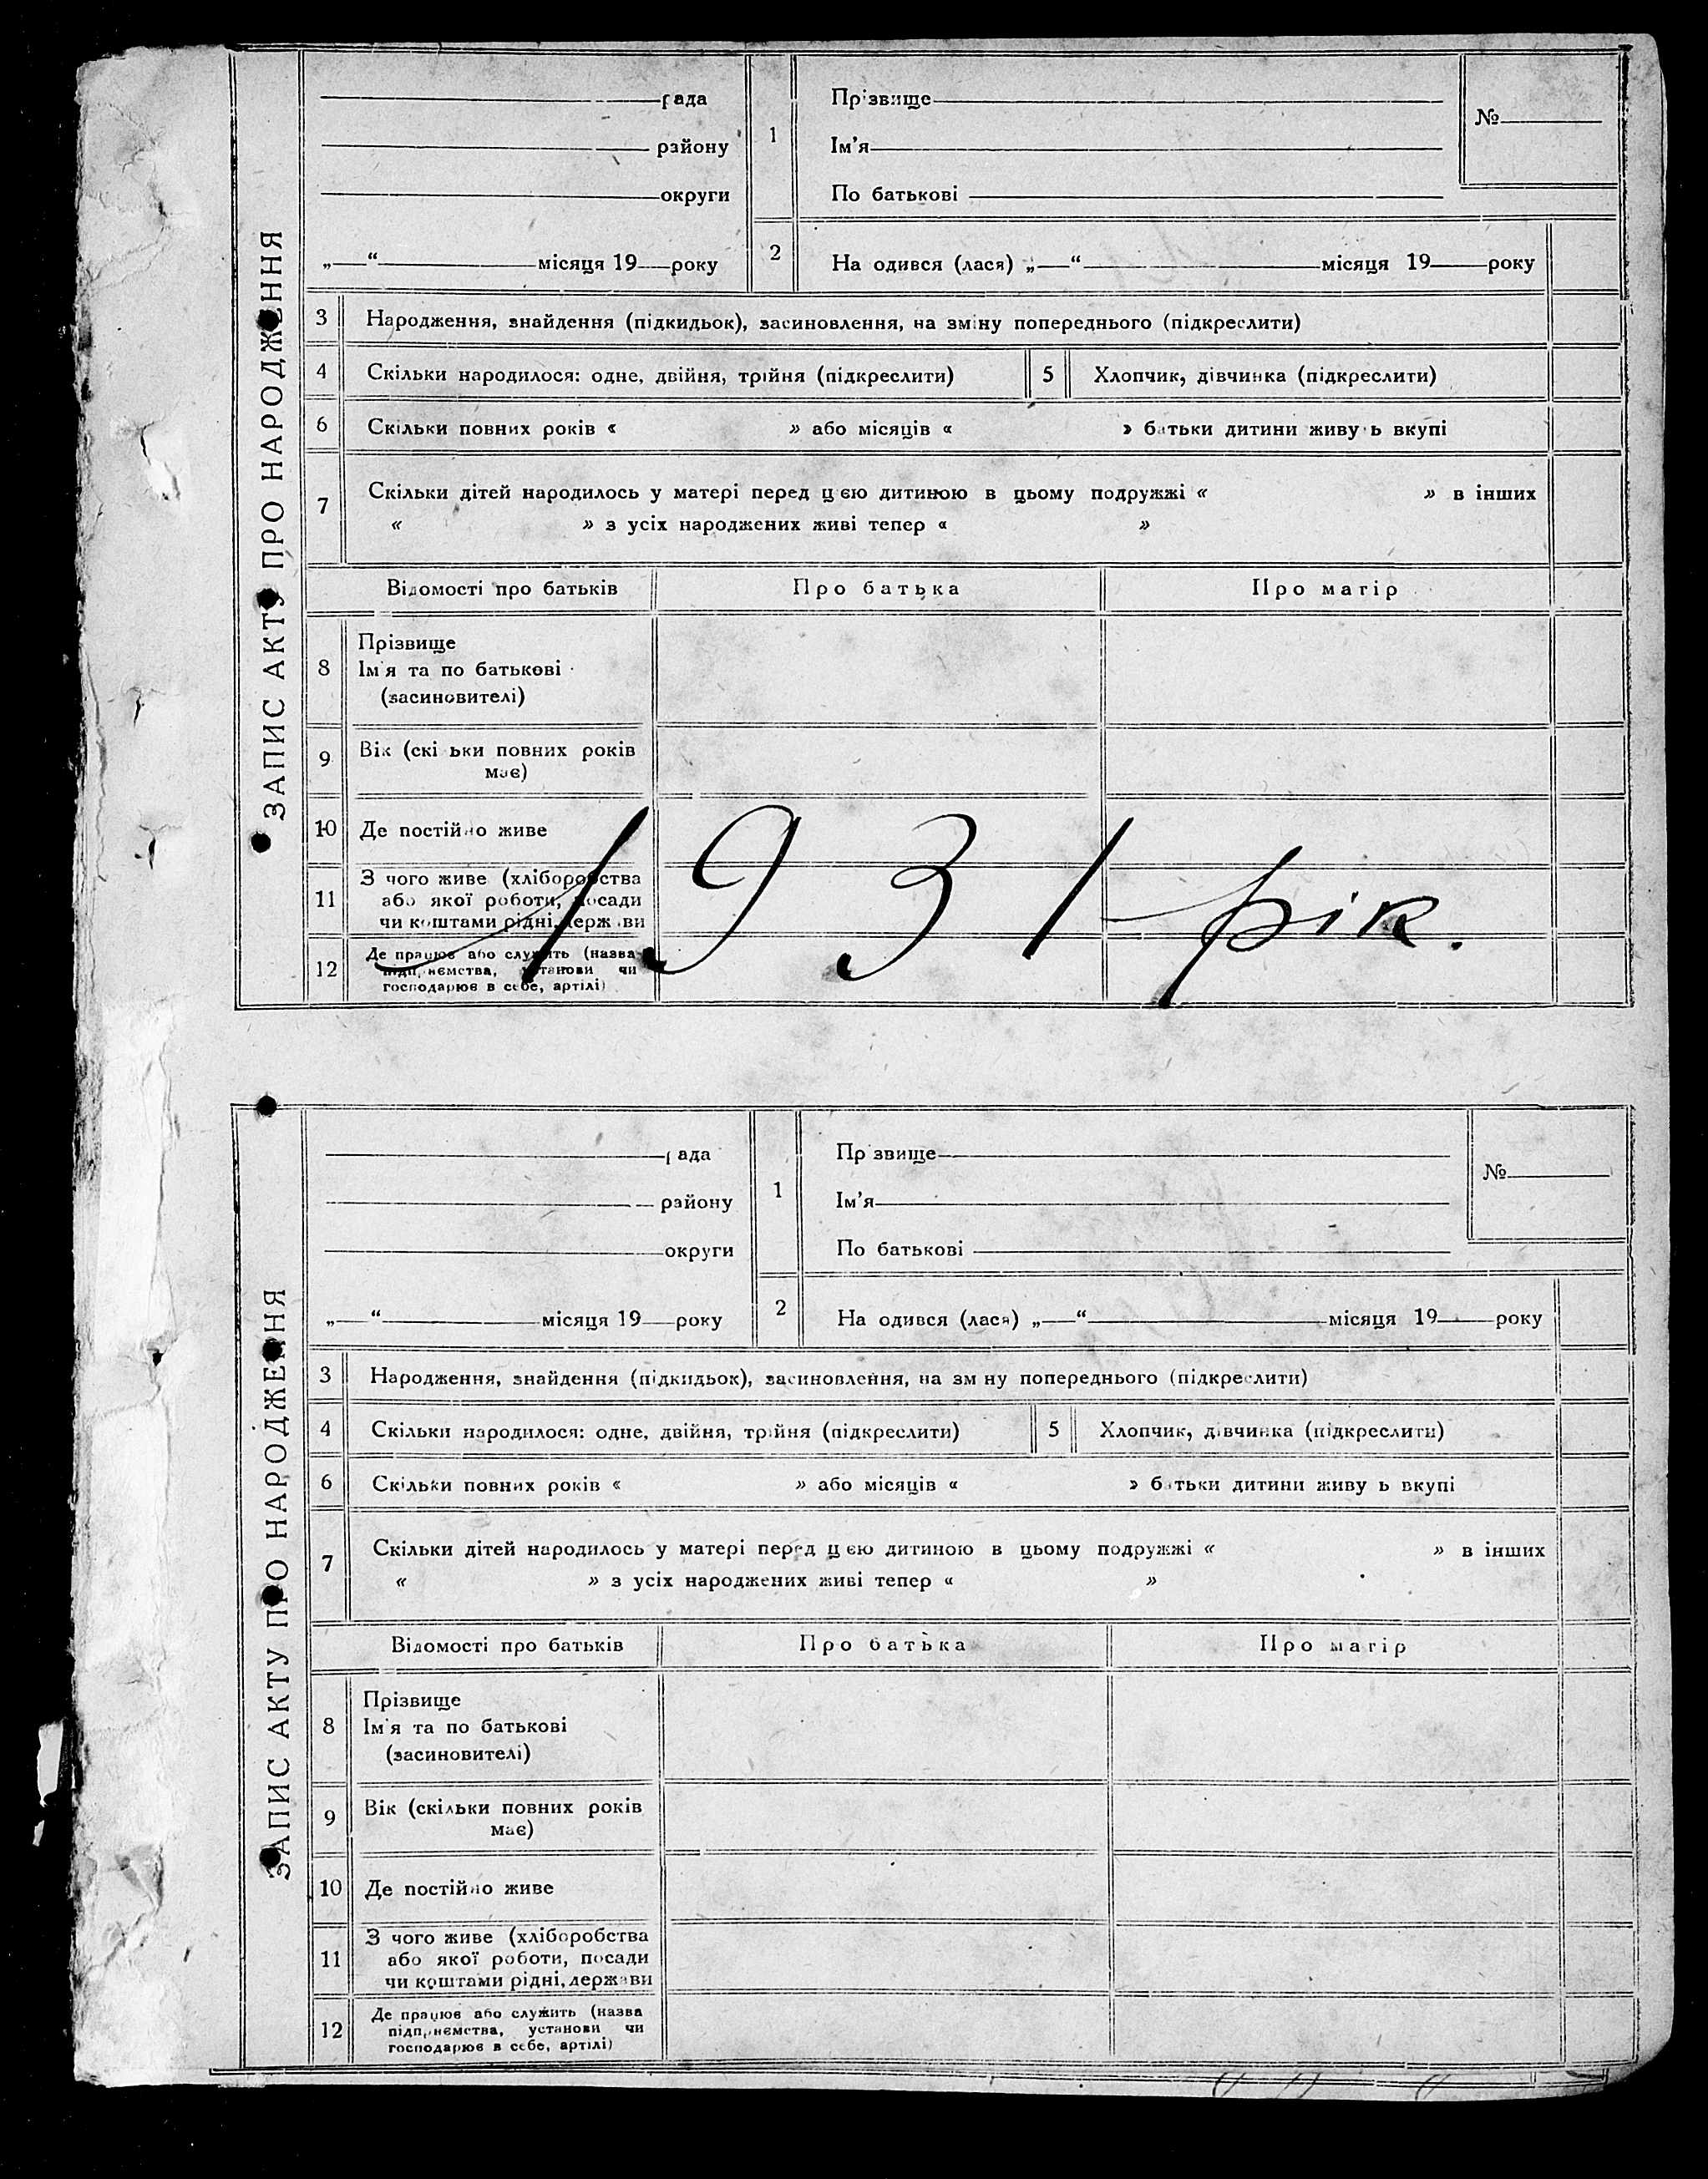 ЗАПИС АКТУ ПРО НАРОДЖЕННЯ
рада
району
округи
„—“ місяця 19 року
1
Прізвище
Ім'я
По батькові
№
2
На одився (лася) „—“ місяця 19 року
3 Народження, знайдення (підкидьок), засиновлення, на зміну попереднього (підкреслити)
4 Скільки народилося: одне, двійня, трійня (підкреслити) 5 Хлопчик, дівчинка (підкреслити)
6 Скільки повних років « » або місяців « » батьки дитини живу ь вкупі
7 Скільки дітей народилось у матері перед цєю дитиною в цьому подружжі « » в інших
« » з усіх народжених живі тепер « »
Відомості про батьків Про батька Про матір
8 Прізвище
Ім'я та по батькові
(засиновителі)
9 Вік (скі ьки повних років
має)
10 Де постійно живе
11 З чого живе (хліборобства
або якої роботи, посади
чи коштами рідні, держави
12 Де працює або служить (назва
підприємства, установи чи
господарює в себе, артілі)
1931 рік.
ЗАПИС АКТУ ПРО НАРОДЖЕННЯ
рада
району
округи
„—“ місяця 19 року
1
Пр звище
Ім'я
По батькові
№
2
На одився (лася) „—“ місяця 19 року
3 Народження, знайдення (підкидьок), засиновлення, на зм ну попереднього (підкреслити)
4 Скільки народилося: одне, двійня, трійня (підкреслити) 5 Хлопчик, дівчинка (підкреслити)
6 Скільки повних років « » або місяців « » батьки дитини живу ь вкупі
7 Скільки дітей народилось у матері перед цєю дитиною в цьому подружжі « » в інших
« » з усіх народжених живі тепер « »
Відомості про батьків Про батька Про матір
8 Прізвище
Ім'я та по батькові
(засиновителі)
9 Вік (скільки повних років
має)
10 Де постійно живе
11 З чого живе (хліборобства
або якої роботи, посади
чи коштами рідні, держави
12 Де працює або служить (назва
підприємства, установи чи
господарює в себе, артілі)